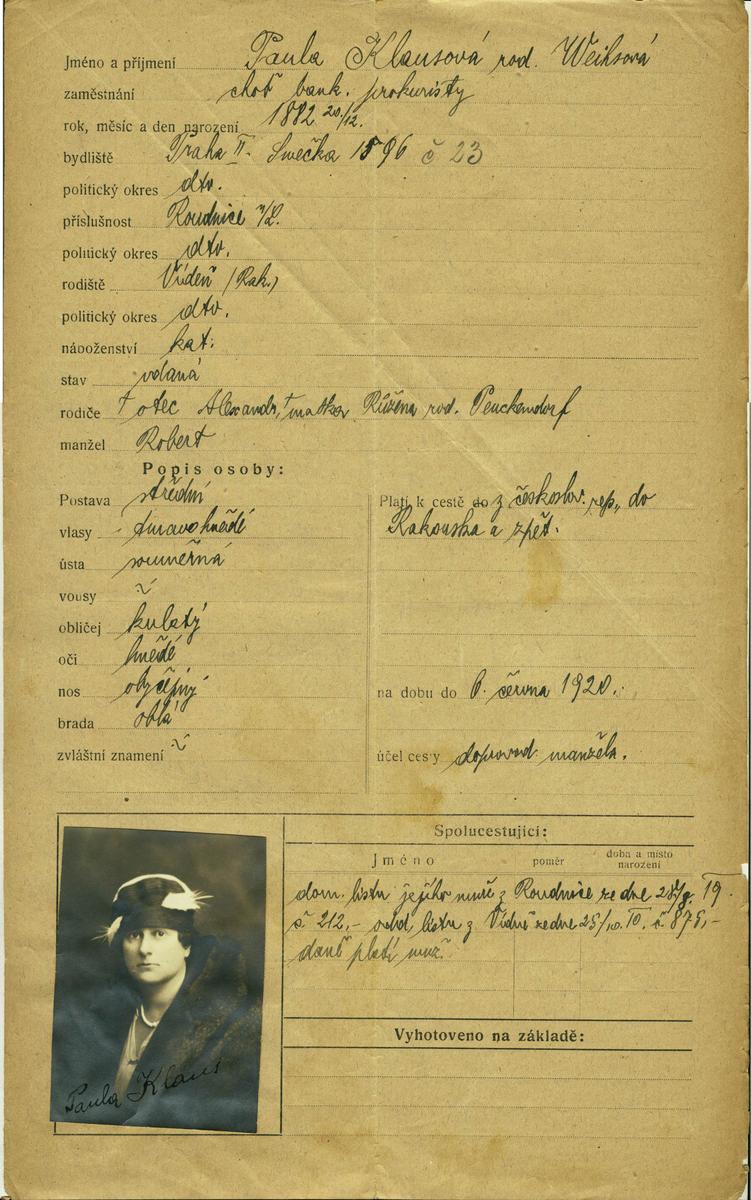 Jméno a příjmení Paula Klausová rod. Weihsová
zaměstnání choť bank. prokuristy
rok, měsíc a den narození 1882 20/12.
bydliště Praha II. Smečka 1896 č 23
politický okres dtv.
příslušnost Roudnice n/L.
politický okres dtv.
rodiště Vídeň (Rak.)
politický okres dtv.
náboženství kat.
stav vdaná
rodiče † otec Alexandr, † matka Růžena rod. Penckendorf
manžel Robert
Popis osoby:
Postava střední
vlasy tmavohnědé
ústa souměrná
vousy
obličej kulatý
oči hnědé
nos obyčejný
brada oblá
zvláštní znamení
Platí k cestě do z českoslov. rep., do
Rakouska a zpět.
na dobu do 6. června 1920.
účel cesty doprovod. manžela.
Spolucestující:
Jméno poměr doba a místo narození
dom. listu jejího muže z Roudnice ze dne 19.
č 212,- odd listu z Vídně ze dne 25/10. č. 875,-
daně platí muž.
Vyhotoveno na základě:
Paula Klaus